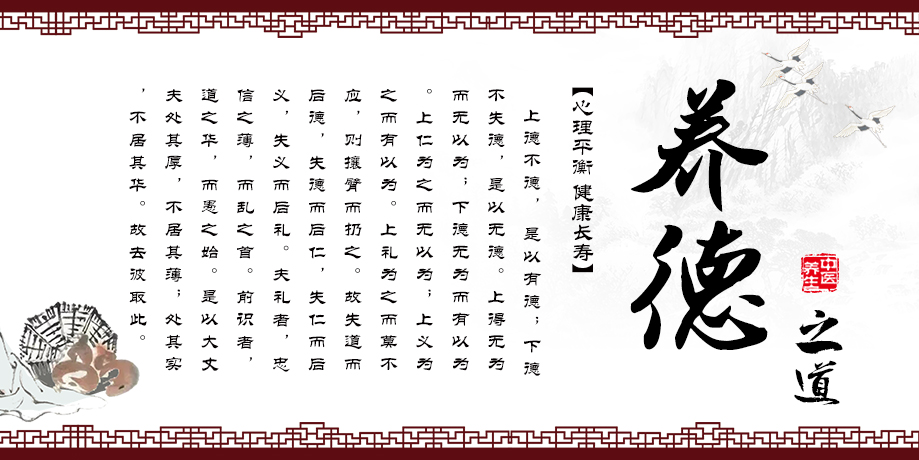 养德
中医
养生
之道
【心理平衡 健康长寿】
上德不德，是以有德；下德
不失德，是以无德。上得无为
而无以为；下德无为而有以为
。上仁为之而无以为；上义为
之而有以为。上礼为之而莫不
应，则攘臂而扔之。故失道而
后德，失德而后仁，失仁而后
义，失义而后礼。夫礼者，忠
信之薄，而乱之首。前识者，
道之华，而愚之始。是以大丈
夫处其厚，不居其薄；处其实
，不居其华。故去彼取此。